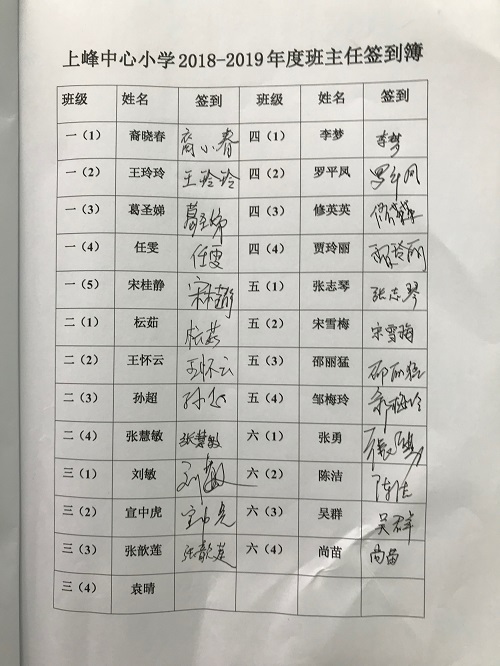 上峰中心小学2018-2019年度班主任签到簿
班级 姓名 签到 班级 姓名 签到
一（1） 裔晓春 裔小春 四（1） 李梦 李梦
一（2） 王玲玲 王玲玲 四（2） 罗平凤 罗平凤
一（3） 葛圣娣 葛圣娣 四（3） 修英英 修英英
一（4） 任雯 任雯 四（4） 贾玲丽 贾玲丽
一（5） 宋桂静 宋桂静 五（1） 张志琴 张志琴
二（1） 枟茹 枟茹 五（2） 宋雪梅 宋雪梅
二（2） 王怀云 王怀云 五（3） 邵丽猛 邵丽猛
二（3） 孙超 孙超 五（4） 邹梅玲 邹梅玲
二（4） 张慧敏 张慧敏 六（1） 张勇 张勇
三（1） 刘敏 刘敏 六（2） 陈洁 陈洁
三（2） 宣中虎 宣中虎 六（3） 吴群 吴群
三（3） 张歆莲 张歆莲 六（4） 尚苗 尚苗
三（4） 袁晴